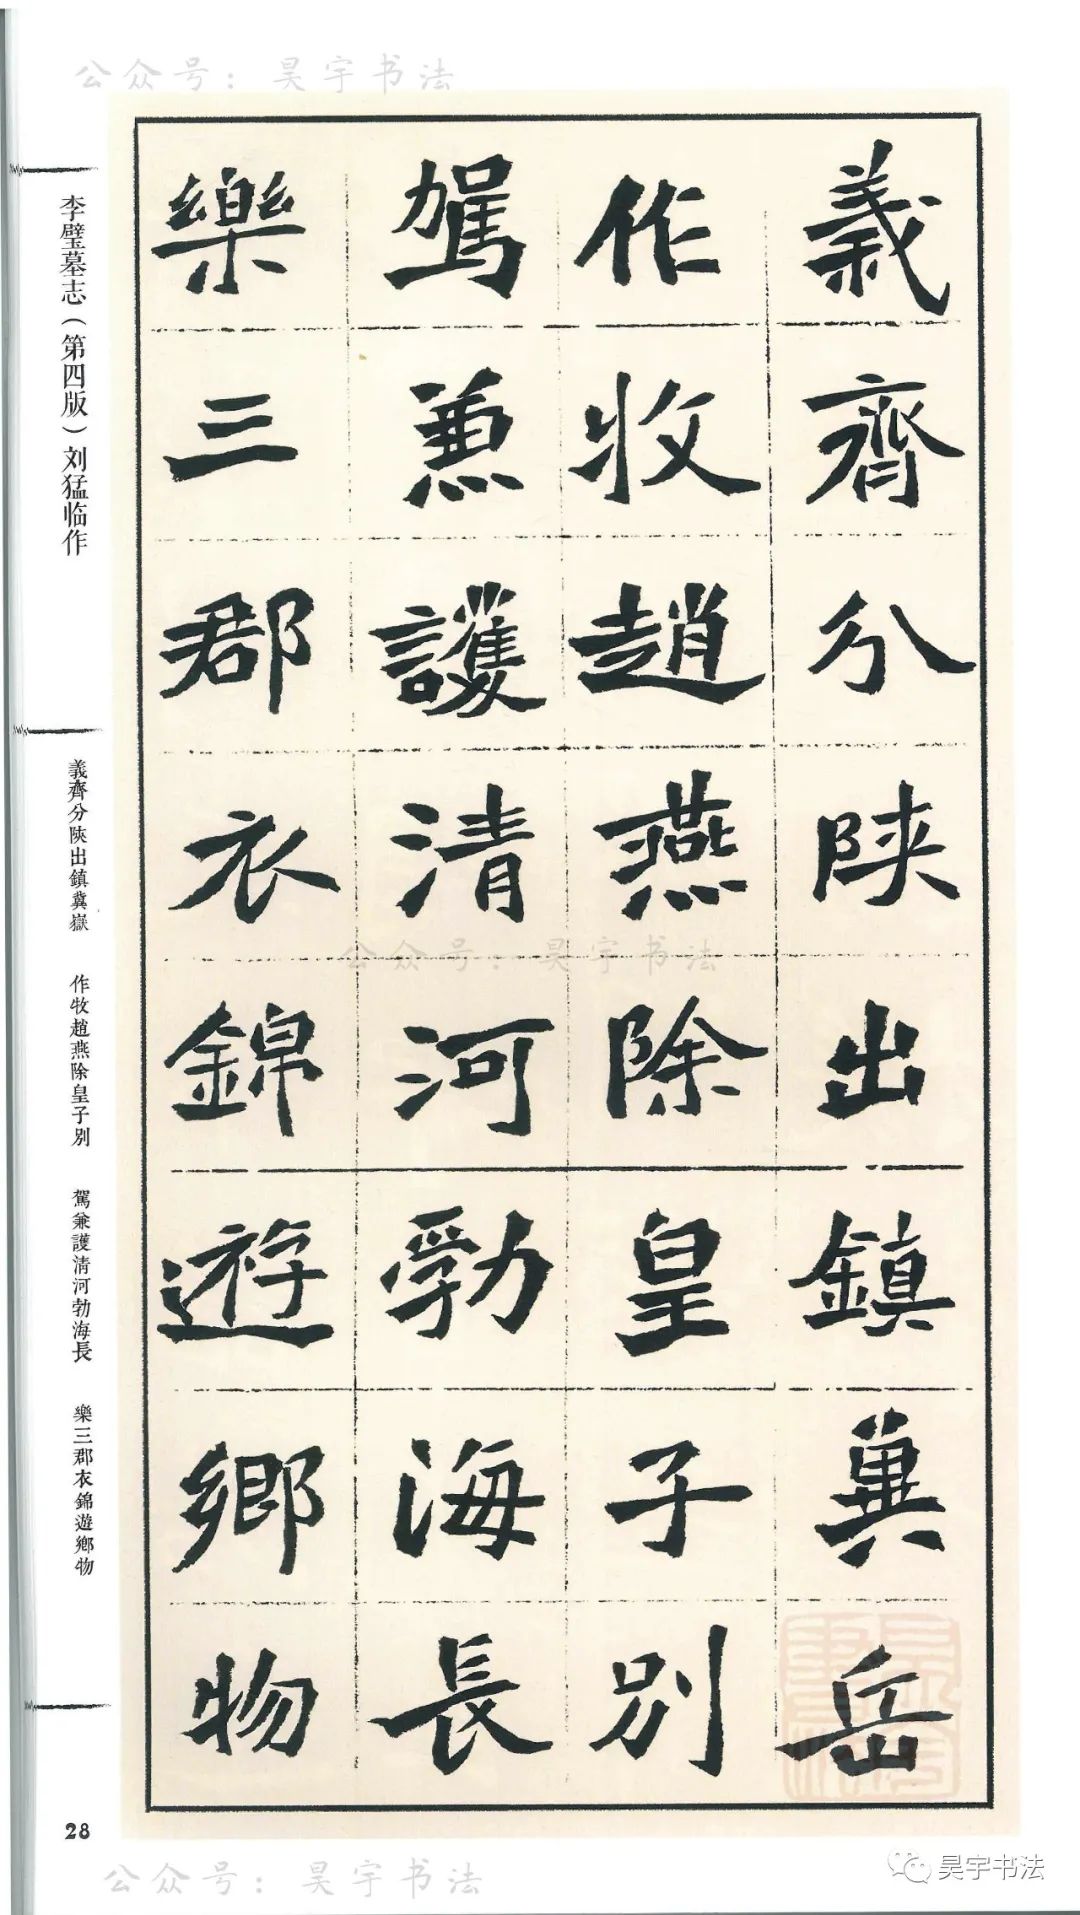 公众号：昊宇书法
義齊分陝出鎮冀岳
作牧趙燕除皇子別
駕兼護清河勃海長
樂三郡衣錦遊鄉物
李璧墓志（第四版）刘猛临作
義齊分陝出鎮冀嶽　作牧趙燕除皇子别　駕兼護清河勃海長　樂三郡衣錦遊鄉物
公众号：昊宇书法
28
公众号：昊宇书法
昊宇书法